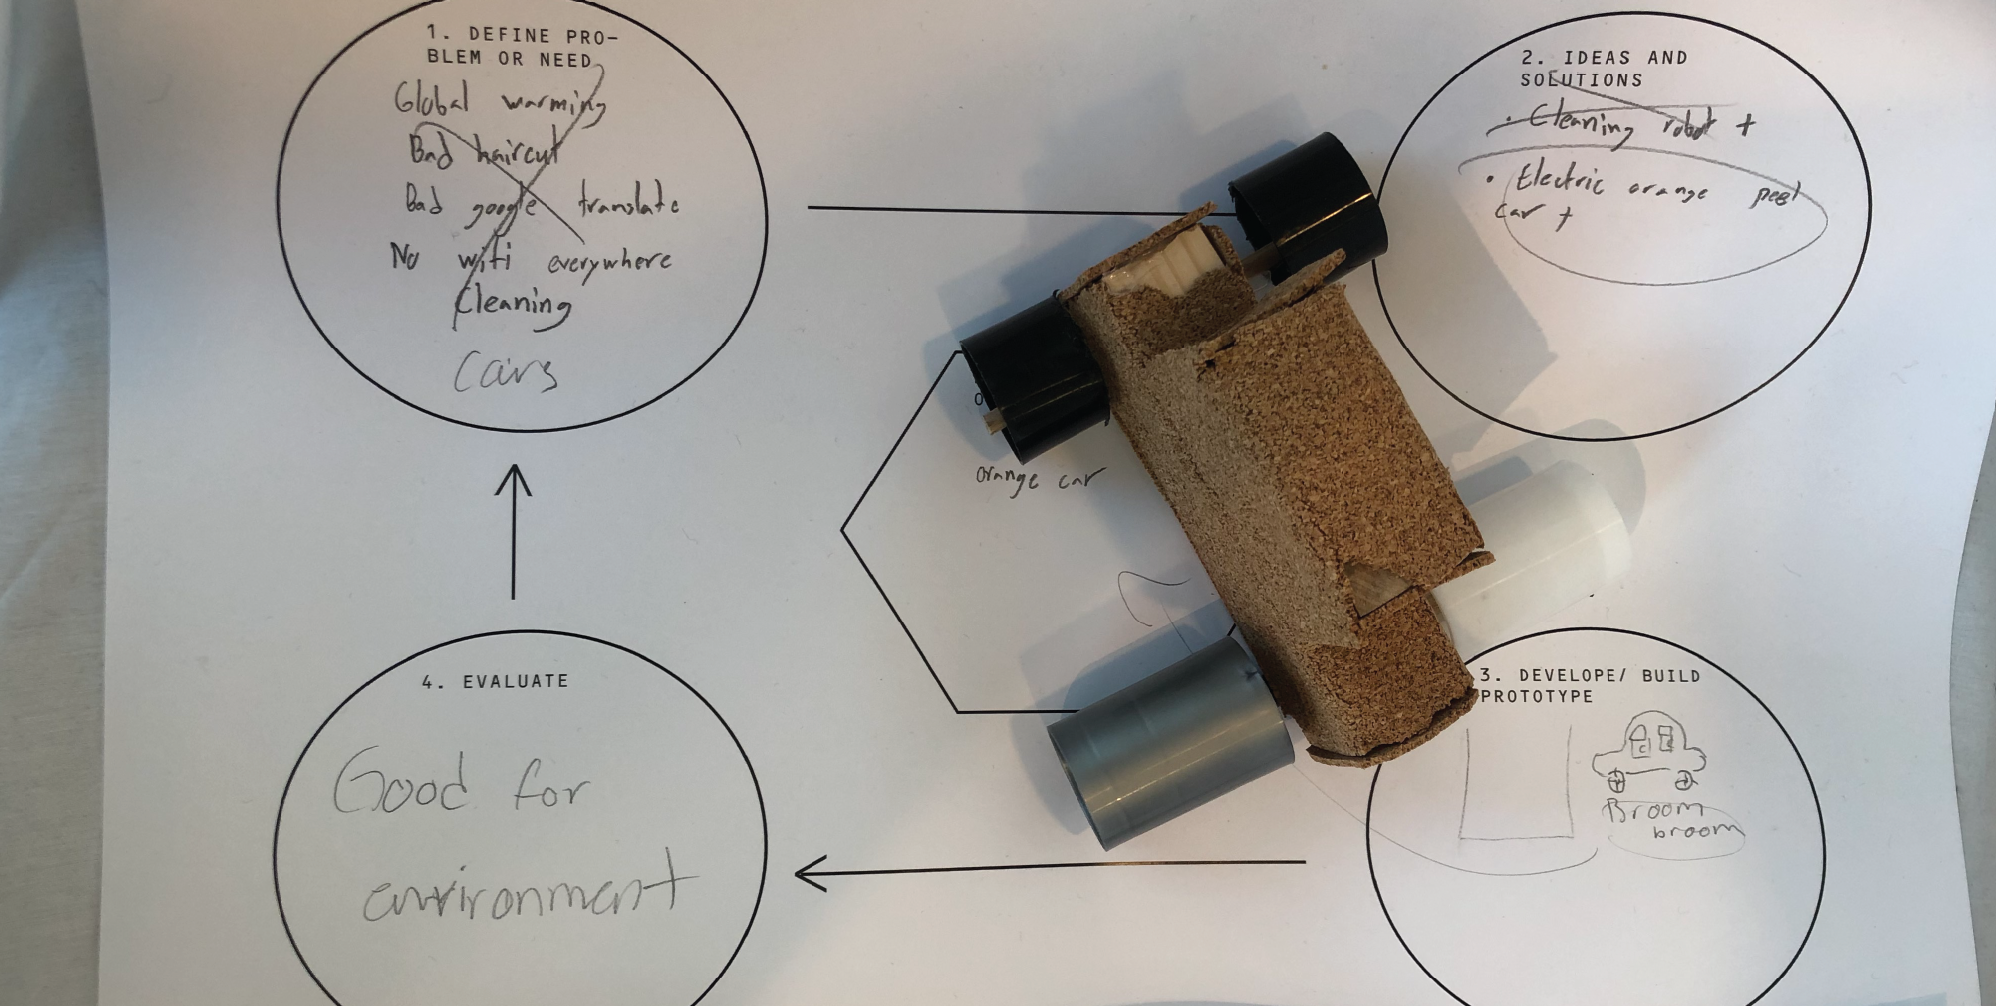 1. DEFINE PRO-
BLEM OR NEED
Global warming
Bad haircut
Bad google translate
No wifi everywhere
Cleaning
Cars
2. IDEAS AND
SOLUTIONS
• Cleaning robot +
• Electric orange peel
car +
orange car
3. DEVELOPE/ BUILD
PROTOTYPE
Broom
broom
4. EVALUATE
Good for
environment